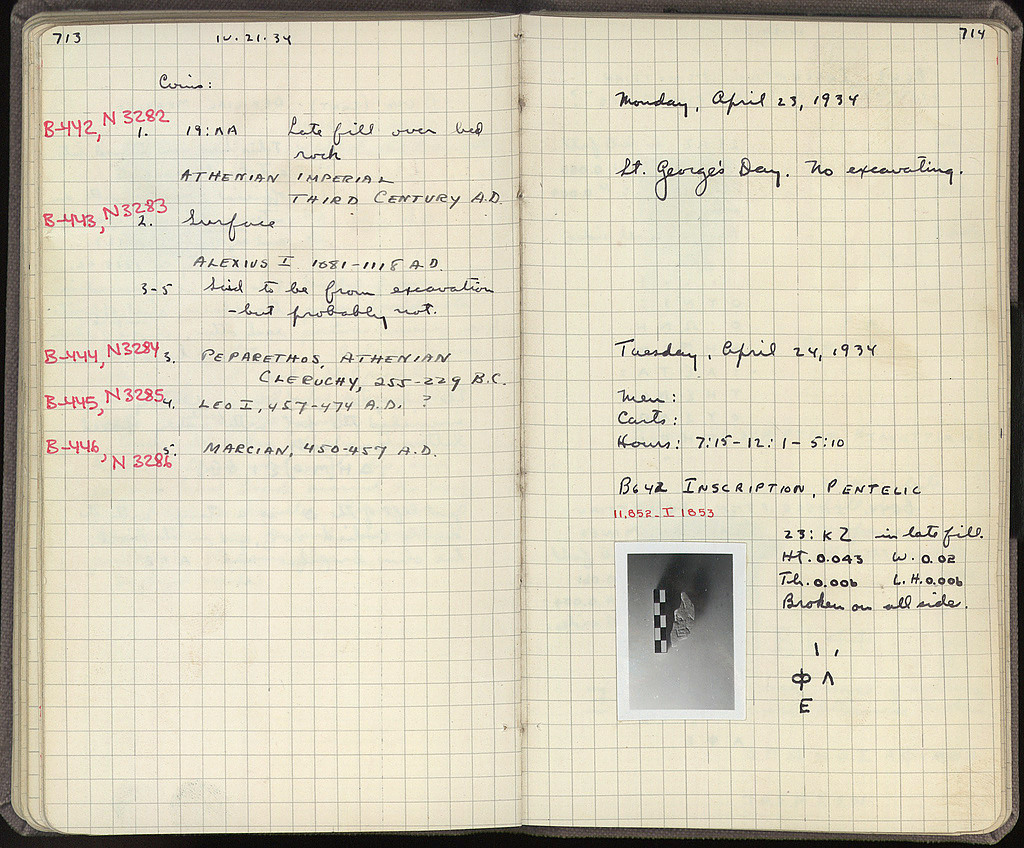 713
IV. 21. 34
Coins:
B-442, N 3282
1. 19: ΛA Late fill over bed
rock
ATHENIAN IMPERIAL
THIRD CENTURY A.D.
B-443, N3283
2. Surface
ALEXIUS I 1081-1118 A.D.
3-5 Said to be from excavation
-but probably not.
B-444, N3284 3. PEPARETHOS, ATHENIAN
CLERUCHY, 255-229 B.C.
B-445, N3285 4. LEO I, 457-474 A.D. ?
B-446, 5. MARCIAN, 450-457 A.D.
N 3286
714
Monday, April 23, 1934
St. George's Day. No excavating.
Tuesday, April 24, 1934
Men:
Carts:
Hours: 7:15-12: 1-5:10
B642 INSCRIPTION, PENTELIC
11,852-I 1853
23: KZ in late fill.
Ht. 0.043 W. 0.02
Th. 0.006 L.H. 0.006
Broken on all side.
Φ Λ
E